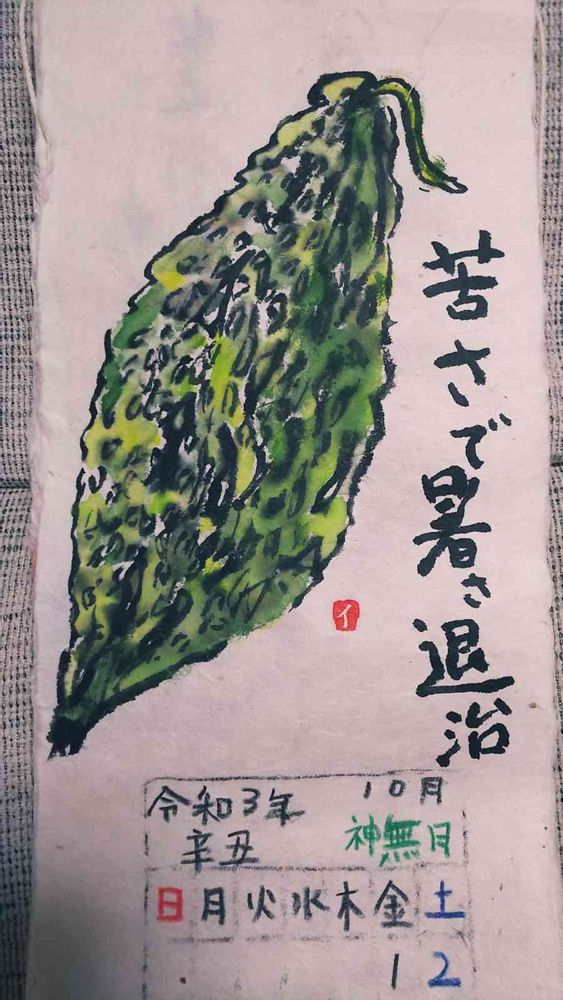 苦さで暑さ退治
イ
令和3年 10月
辛丑 神無月
日月火水木金土
1 2